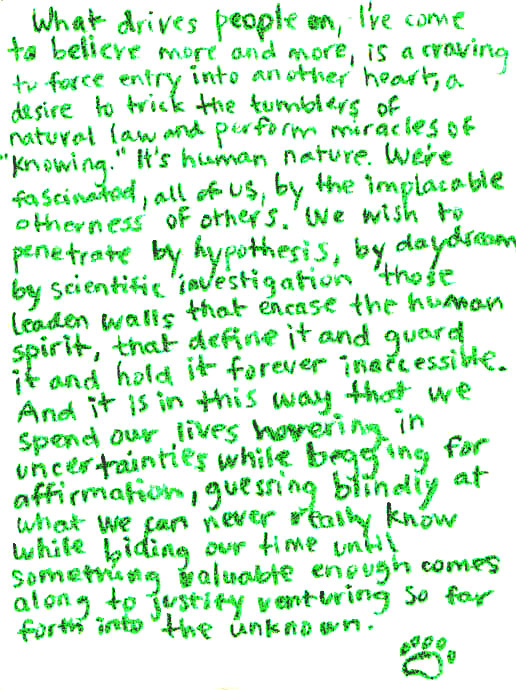 What drives people on, I've come
to believe more and more, is a craving
to force entry into another heart, a
desire to trick the tumblers of
natural law and perform miracles of
"knowing." It's human nature. We're
fascinated, all of us, by the implacable
otherness of others. We wish to
penetrate by hypothesis, by daydream
by scientific investigation those
leaden walls that encase the human
spirit, that define it and guard
it and hold it forever inaccessible.
And it is in this way that we
spend our lives hovering in
uncertainties while begging for
affirmation, guessing blindly at
what we can never really know
while biding our time until
something valuable enough comes
along to justify venturing so far
forth into the unknown.